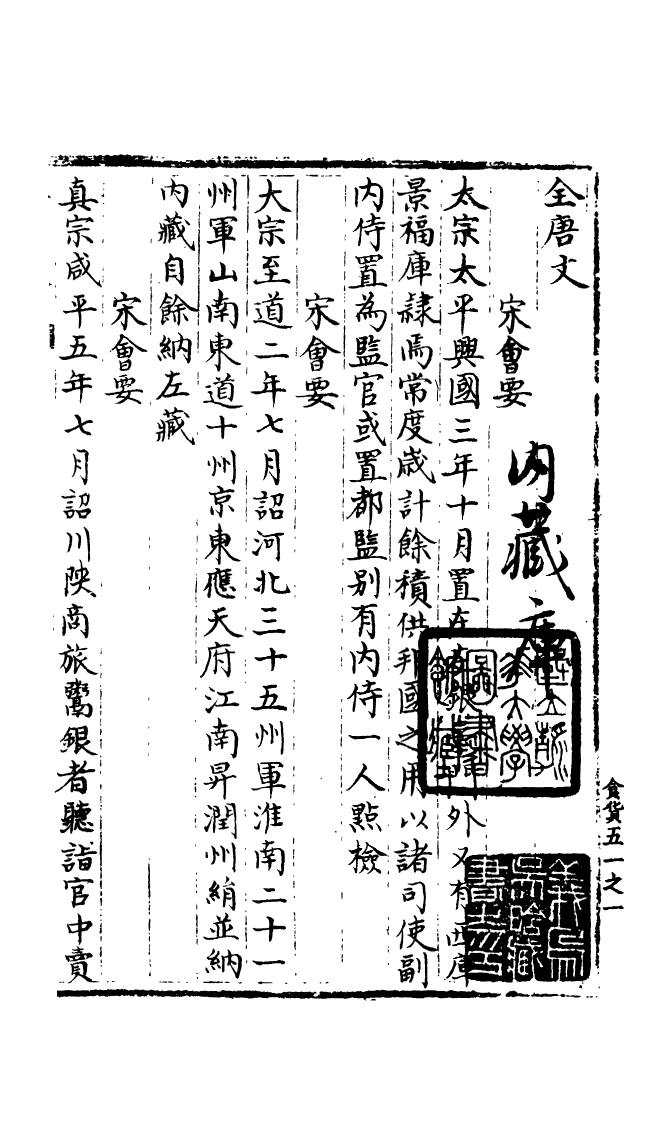 全唐文
宋會要
內藏庫
太宗太平興國三年十月置在銀外又有西庫
景福庫隷焉常度歲計餘積供邦國之用以諸司使副
內侍置為監官或置都監別有內侍一人點檢
宋會要
大宗至道二年七月詔河北三十五州軍淮南二十一
州軍山南東道十州京東應天府江南昇潤州絹並納
內藏自餘納左藏
宋會要
真宗咸平五年七月詔川陝商旅鬻銀者聽詣官中賣
食貨五一之一